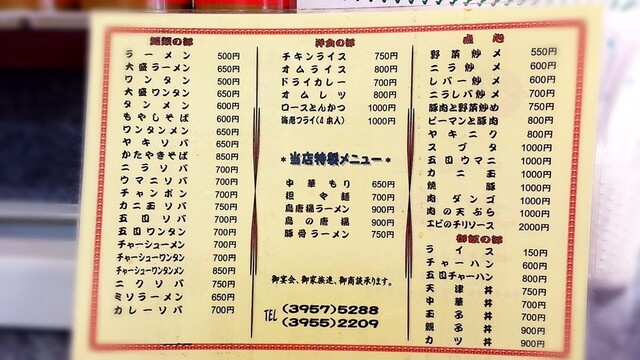 麺類の部
ラーメン 500円
大盛ラーメン 650円
ワンタン 500円
大盛ワンタン 650円
タンメン 600円
もやしそば 600円
ワンタンメン 650円
ヤキソバ 650円
かたやきそば 850円
ニラソバ 700円
ウマニソバ 700円
チャンポン 700円
カニ玉ソバ 750円
五目ソバ 700円
五目ワンタン 700円
チャーシューメン 700円
チャーシューワンタン 700円
チャーシューワンタンメン 850円
ニクソバ 750円
ミソラーメン 650円
カレーソバ 700円
洋食の部
チキンライス 750円
オムライス 800円
ドライカレー 700円
オムレツ 800円
ロースとんかつ 1000円
海老フライ(4本入) 1000円
*当店特製メニュー*
中華もり 650円
担々麺 700円
鳥唐揚ラーメン 900円
鳥の唐揚 900円
豚骨ラーメン 750円
御宴会、御家族連、御商談承ります。
TEL (3957)5288
(3955)2209
点心
野菜炒メ 550円
ニラ炒メ 600円
レバー炒メ 600円
ニラレバ炒メ 700円
豚肉と野菜炒め 750円
ピーマンと豚肉 800円
ヤキニク 800円
スブタ 1000円
五目ウマニ 1000円
カニ玉 1000円
焼豚 1000円
肉ダンゴ 1000円
肉の天ぷら 1000円
エビのチリソース 2000円
御飯の部
ライス 150円
チャーハン 600円
五目チャーハン 800円
天津丼 750円
中華丼 700円
玉子丼 700円
親子丼 900円
カツ丼 900円